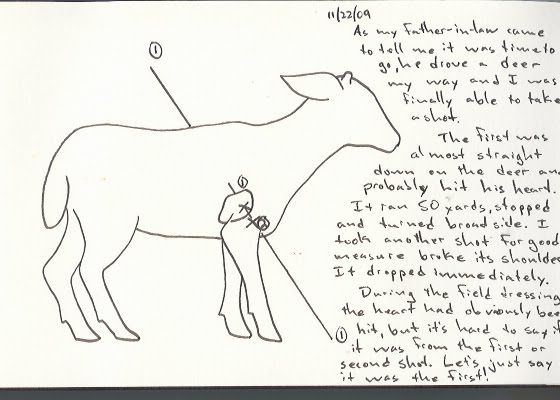 11/22/09
As my father-in-law came
to tell me it was time to
go, he drove a deer
my way and I was
finally able to take
a shot.
The first was
almost straight
down on the deer and
probably hit his heart.
It ran 50 yards, stopped
and turned broadside. I
took another shot for good
measure broke its shoulder
It dropped immediately.
During the field dressing
the heart had obviously bee
hit, but it's hard to say if
it was from the first or
second shot. Let's just say
it was the first!
1
1
2
1